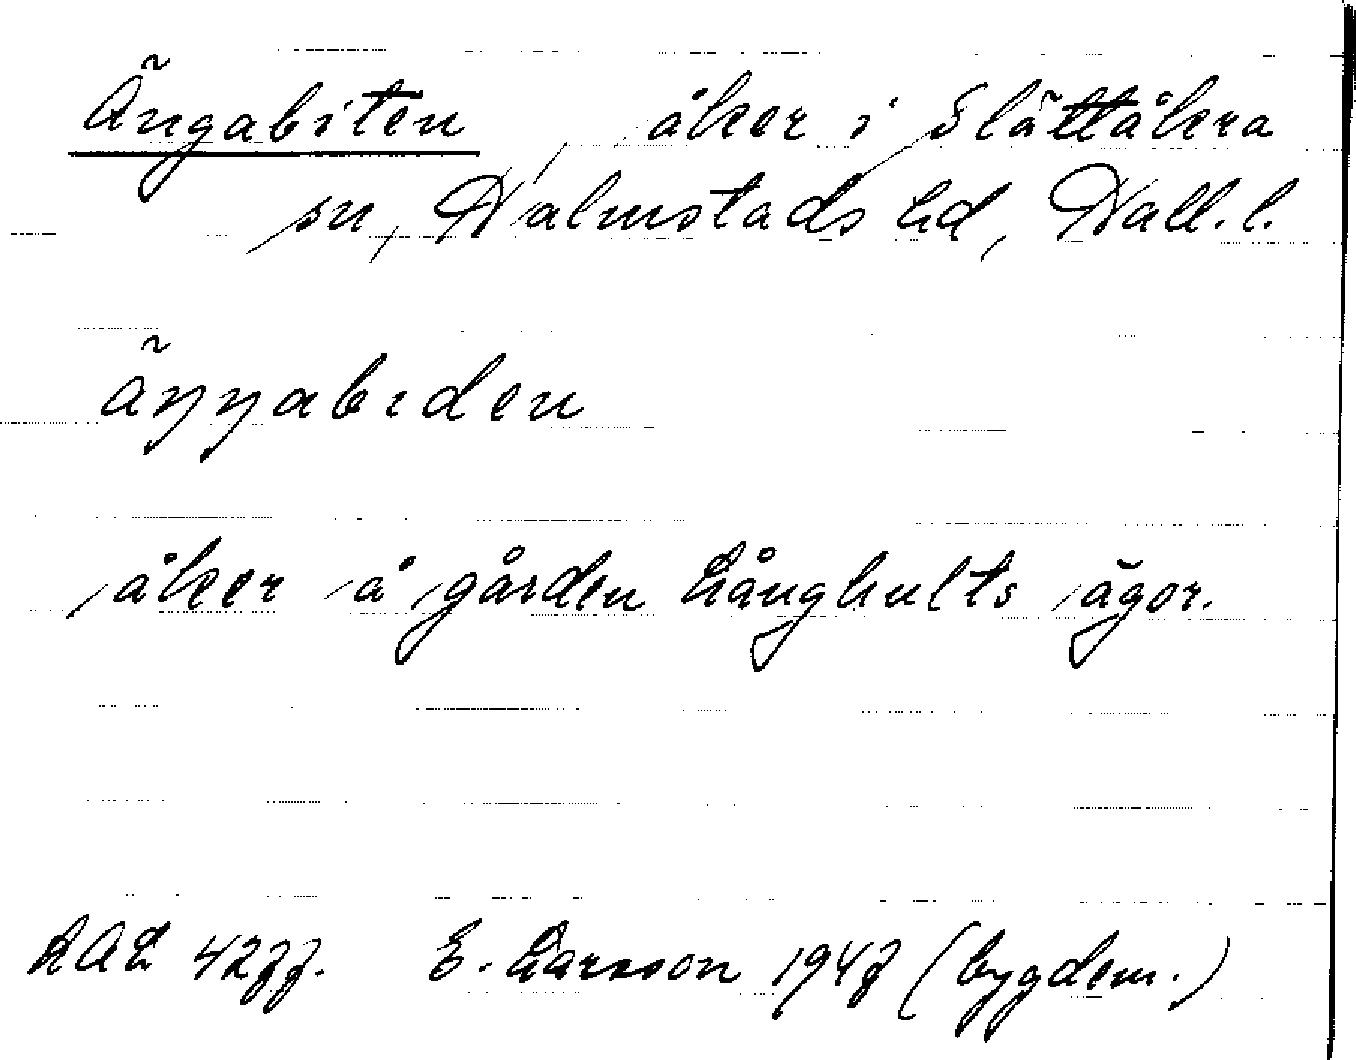 Ängabiten, åker i Slättåkra
sn, Halmstads hd, Hall. l.
äŋŋabıden
åker å gården Långhults ägor.
E. Larsson 1947 (bygdem.)